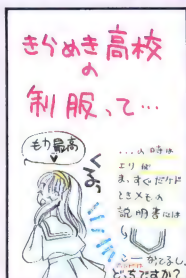 きらめき高校
の
制服って…
もち最高
くるっ
…の時は
エリが
まっすぐだけど
ときメモの
説明書には
てるし、
どっちですか?